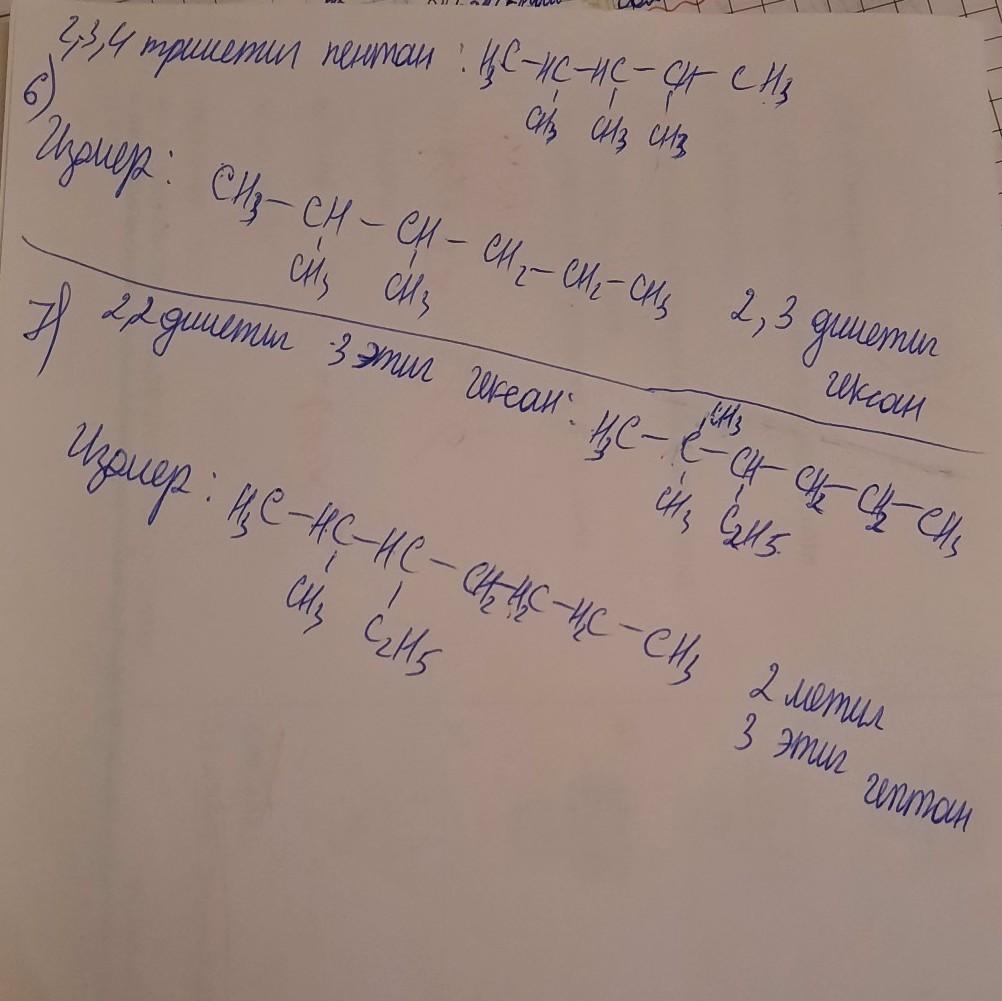 2,3,4 триметил пентан : H₃C – HC – HC – CH – CH₃
CH₃ CH₃ CH₃
6)
Изомер : CH₃ – CH – CH – CH₂ – CH₂ – CH₃
CH₃ CH₃
2, 3 диметил
гексан
7) 2,2 диметил 3 этил гексан :
CH₃
H₃C – C – CH – CH₂ – CH₂ – CH₃
CH₃ C₂H5
Изомер : H₃C – HC – HC – CH₂ – H₂C – H₂C – CH₃
CH₃ C₂H5
2 метил
3 этил
гептан